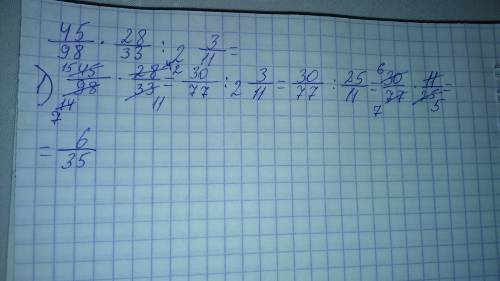 45/98 · 28/33 : 2 3/11 =
1) 15 45/98 14 7 · 28 4 2/33 11 = 30/77 : 2 3/11 = 30/77 : 25/11 = 6 30/77 7 · 11/25 5 =
= 6/35